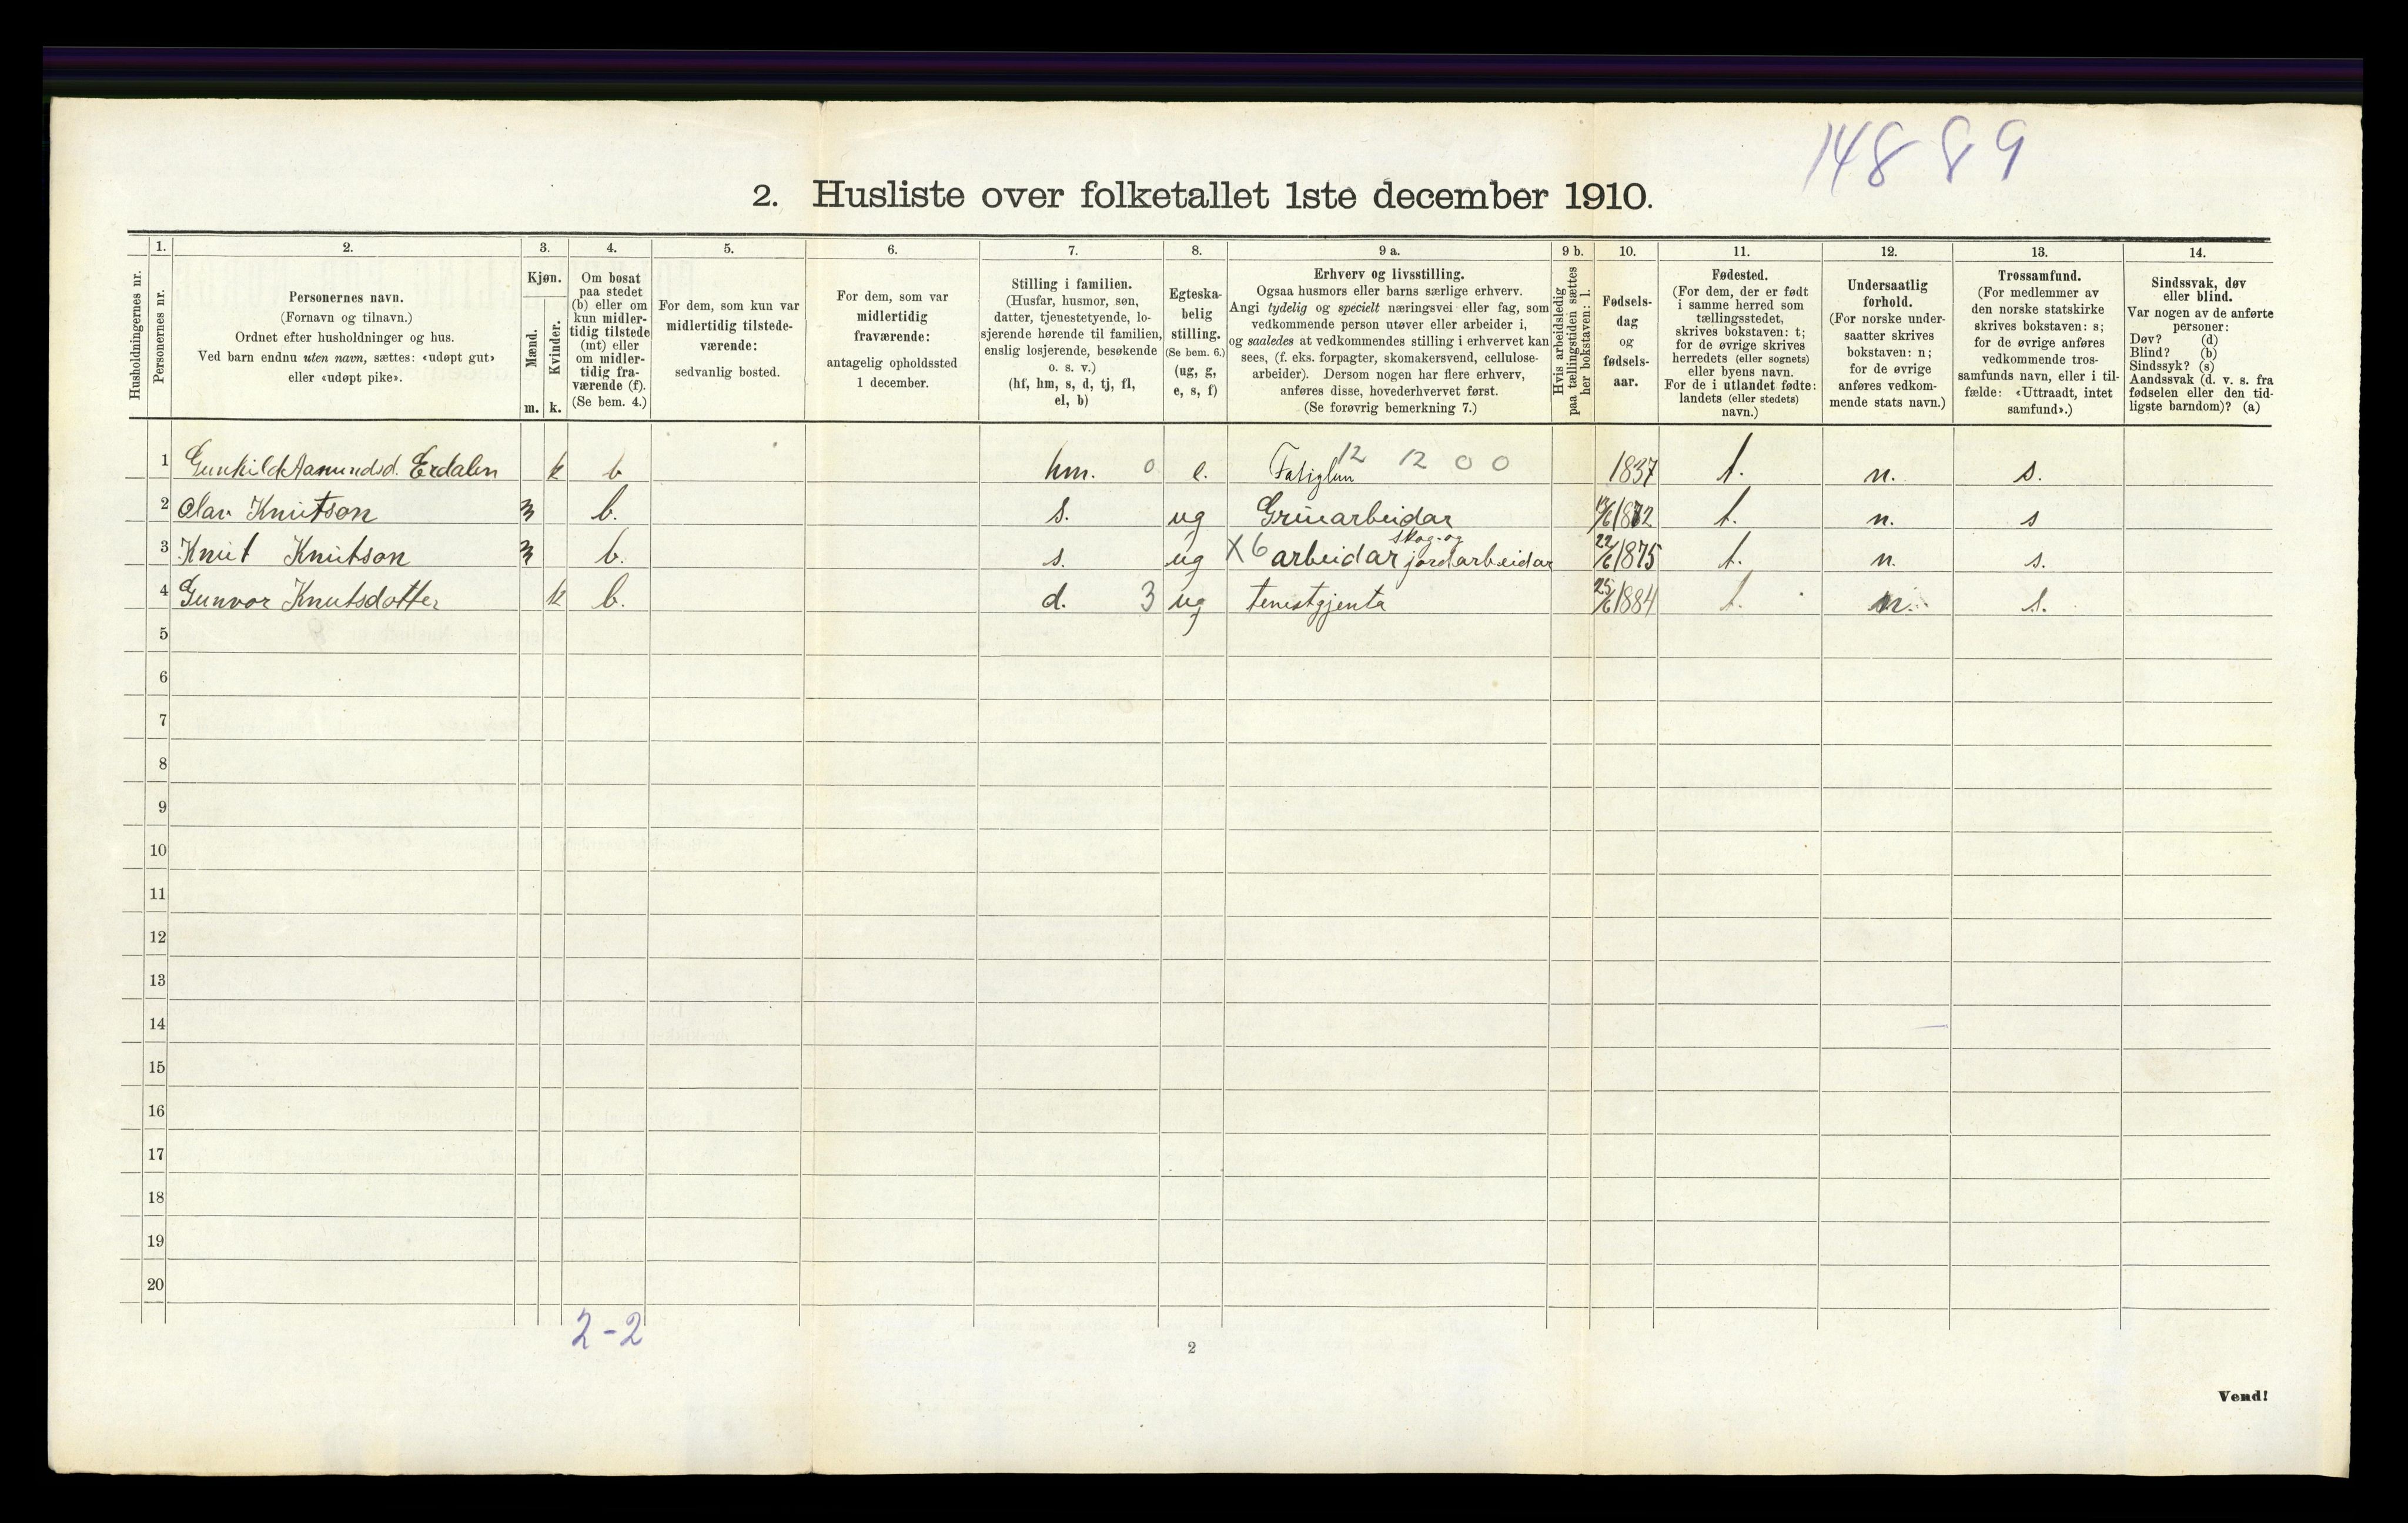 14889
2. Husliste over folketallet 1ste december 1910.
Husholdningernes nr.
1.
Personernes nr.
2.
Personernes navn.
(Fornavn og tilnavn.)
Ordnet efter husholdninger og hus.
Ved barn endnu uten navn, sættes: «udøpt gut»
eller «udøpt pike».
3.
Kjøn.
Mænd.
Kvinder.
m. k.
4.
Om bosat
paa stedet
(b) eller om
kun midler-
tidig tilstede
(mt) eller
om midler-
tidig fra-
værende (f).
(Se bem. 4.)
5.
For dem, som kun var
midlertidig tilstede-
værende:
sedvanlig bosted.
6.
For dem, som var
midlertidig
fraværende:
antagelig opholdssted
1 december.
7.
Stilling i familien.
(Husfar, husmor, søn,
datter, tjenestetyende, lo-
sjerende hørende til familien,
enslig losjerende, besøkende
o. s. v.)
(hf, hm, s, d, tj, fl,
el, b)
8.
Egteska-
belig
stilling.
(Se bem. 6.)
(ug, g,
e, s, f)
9 a.
Erhverv og livsstilling.
Ogsaa husmors eller barns særlige erhverv.
Angi tydelig og specielt næringsvei eller fag, som
vedkommende person utøver eller arbeider i,
og saaledes at vedkommendes stilling i erhvervet kan
sees, (f. eks. forpagter, skomakersvend, cellulose-
arbeider). Dersom nogen har flere erhverv,
anføres disse, hovederhvervet først.
(Se forøvrig bemerkning 7.)
9 b.
Hvis arbeidsledig
paa tællingstiden sættes
her bokstaven: l.
10.
Fødsels-
dag
og
fødsels-
aar.
11.
Fødested.
(For dem, der er født
i samme herred som
tællingsstedet,
skrives bokstaven: t;
for de øvrige skrives
herredets (eller sognets)
eller byens navn.
For de i utlandet fødte:
landets (eller stedets)
navn.)
12.
Undersaatlig
forhold.
(For norske under-
saatter skrives
bokstaven: n;
for de øvrige
anføres vedkom-
mende stats navn.)
13.
Trossamfund.
(For medlemmer av
den norske statskirke
skrives bokstaven: s;
for de øvrige anføres
vedkommende tros-
samfunds navn, eller i til-
fælde: «Uttraadt, intet
samfund».)
14.
Sindssvak, døv
eller blind.
Var nogen av de anførte
personer:
Døv? (d)
Blind? (b)
Sindssyk? (s)
Aandssvak (d. v. s. fra
fødselen eller den tid-
ligste barndom)? (a)
1 Gunhild Aamundsd. Erdalen k b hm. 0 e. 12 12 0 0 1837 t. n. s.
2 Olav Knutson m b. s. ug 1872 t. n. s
3 Knut Knutson m b. s. ug X6 arbeidar skog- og jordarbeidar 22/6 1875 t. n. s.
4 Gunvor Knutsdotter k b. d. 3 ug tenestgjenta 25/6 1884 t. n. s.
5
6
7
8
9
10
11
12
13
14
15
16
17
18
19
20
2-2
2
Vend!